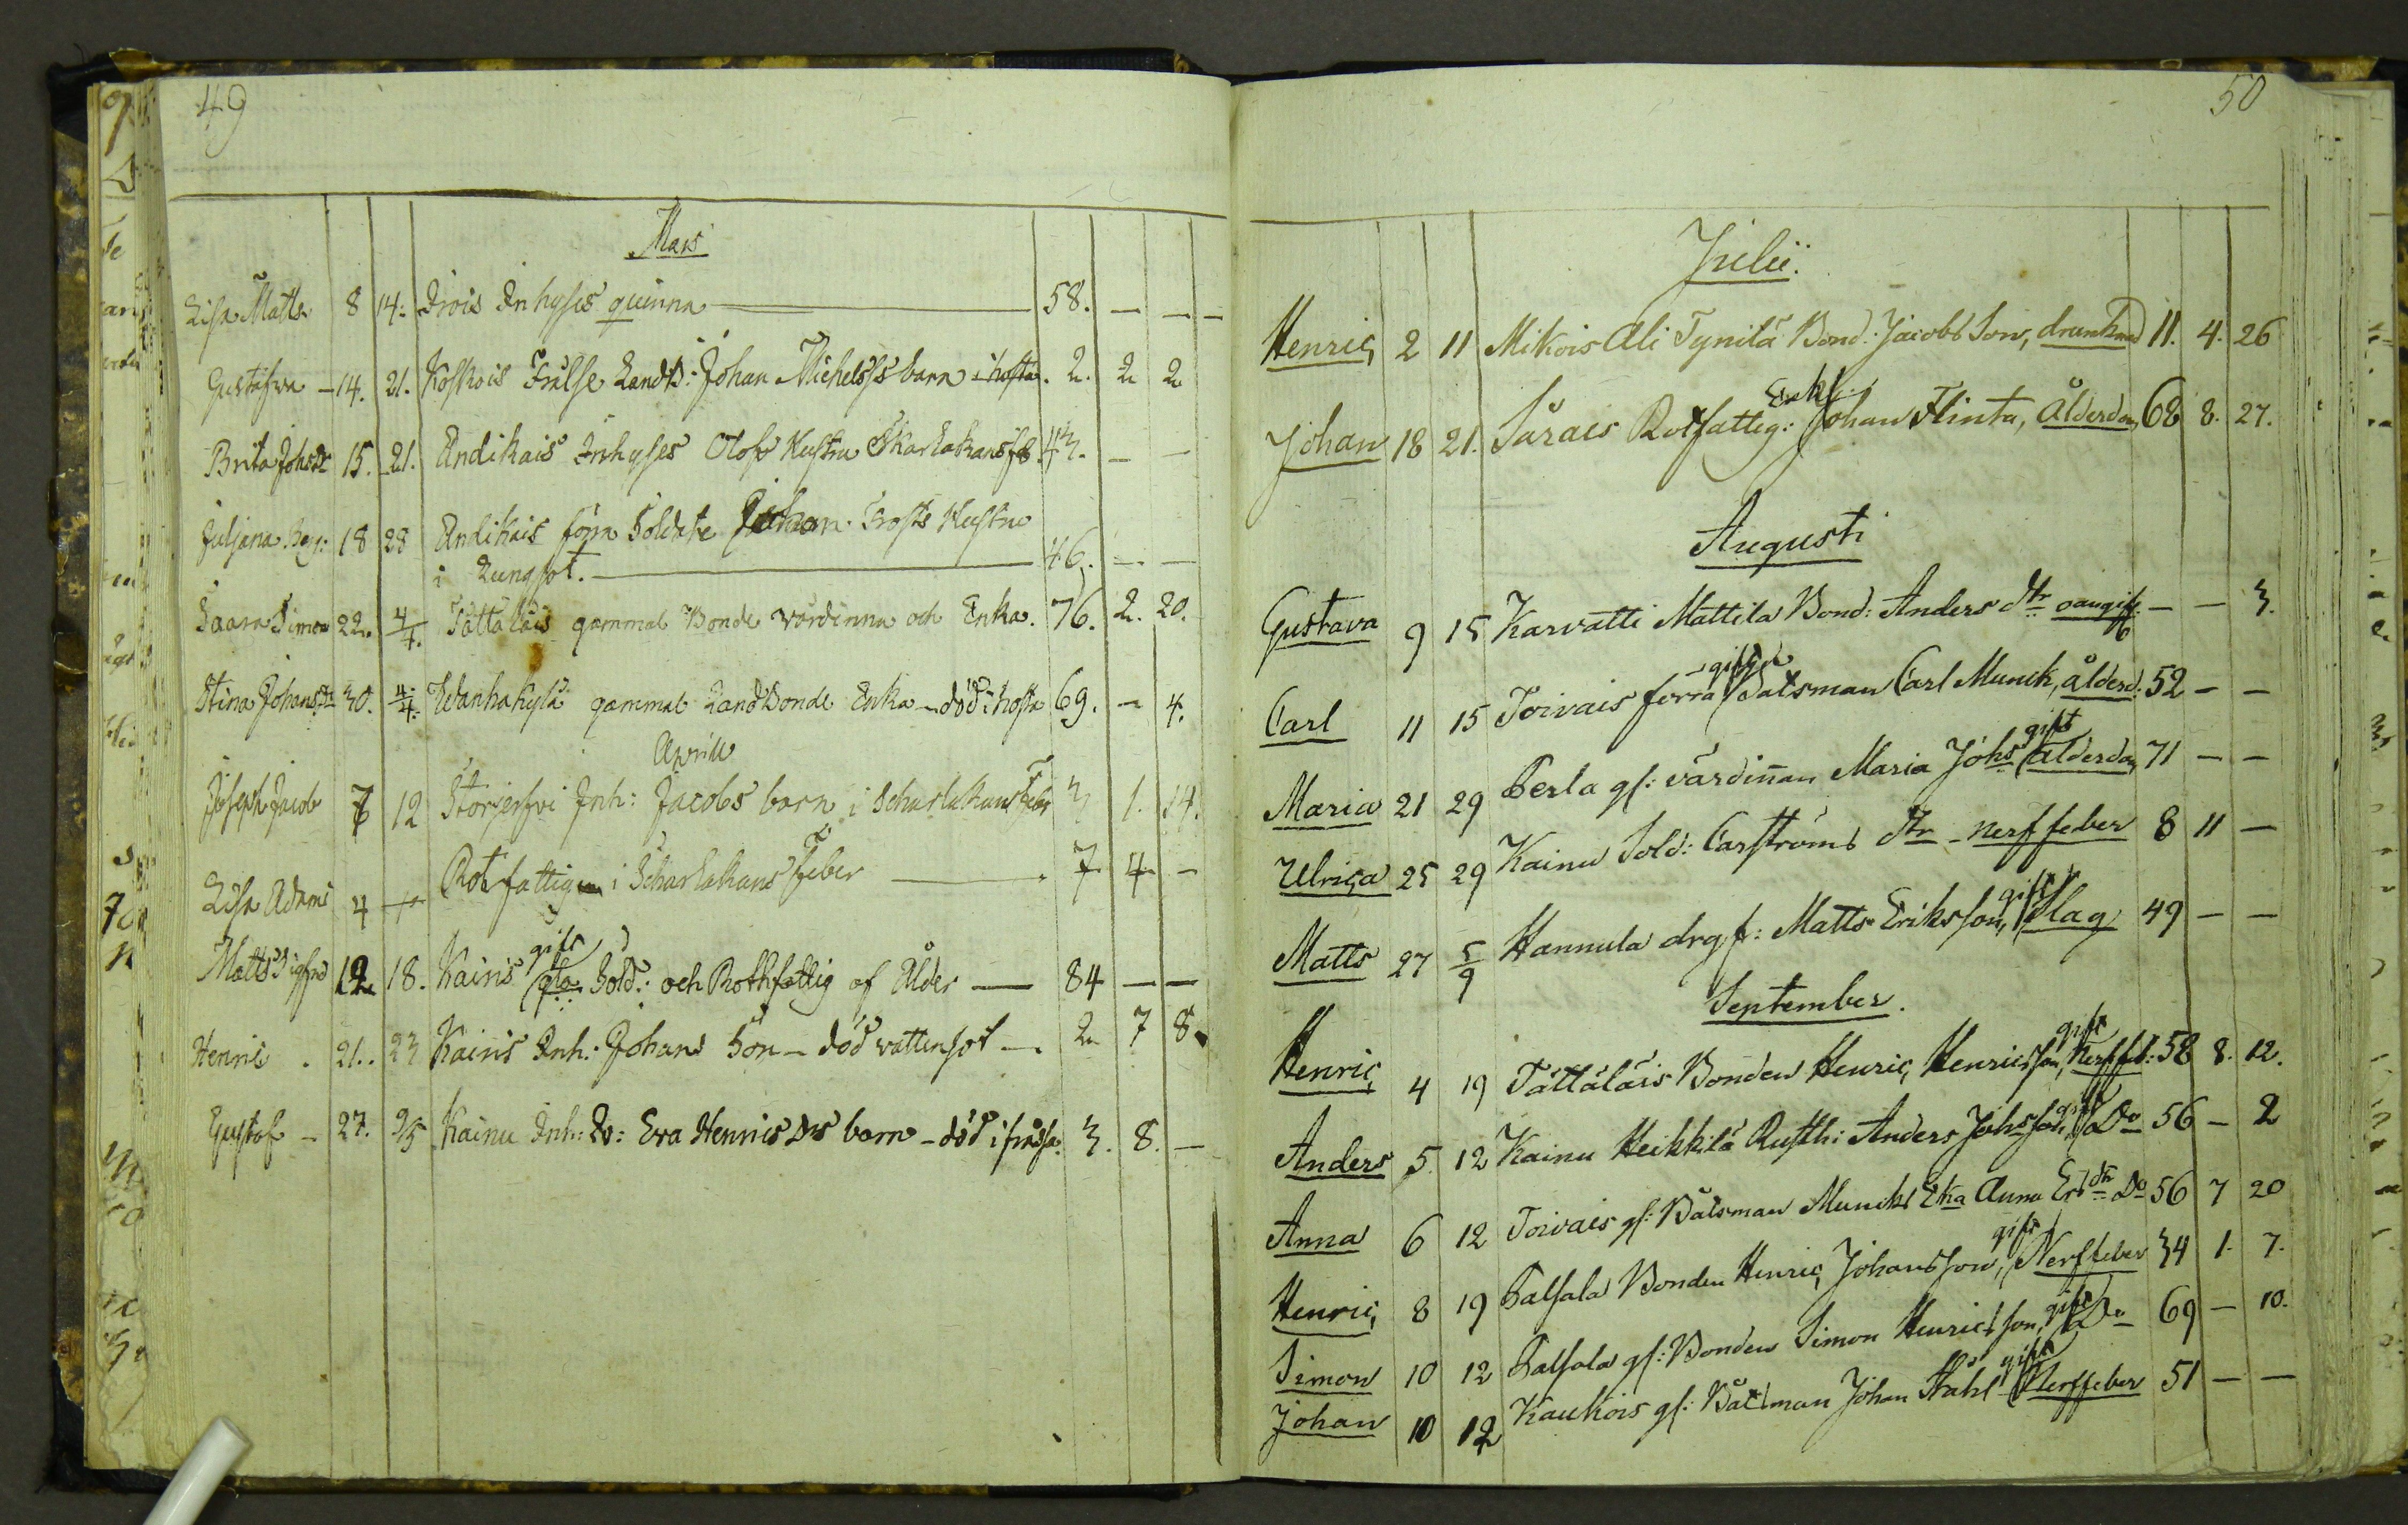 49
Mars
Lisa Matts 8 14. Irois Inhyses quinna 58. — — —
Gustafva — 14. 21. Koskois Frälse Landb: Johan Michelss barn i hosta. 2. 2 2
Brita Johsdr 15. 21. Andikais Inhyses Olofs Hustru Skarlakansfeb. 43. — —
Juljana Hen: 18 28 Andikais förra Soldate Johan Frosts Hustru
i Lungsot. 46. — —
Saara Simon 22. 4/4. Tättäläis gammal Bonde Wärdinna och Enka. 76. 2. 20.
Stina Johansdr 30. 4/4. Wanhakylä gammal Landbonde Enka — död i hosta 69. — 4.
Aprill
Joseph Jacob 7 12 Storjerfvi Inh: Jacobs barn i Scharlakans Feber 3 1. 14.
Lisa Adams 4 — Rotefattig i Scharlakans Feber 7 4 —
gift
Matts Sigfrid 12 18. Kairis gla Sold: och Rothfattig af Ålder — 84 — —
Henric . 21. 23 Kairis Inh: Johans Son — död vattensot — 2 7 8.
Gustaf — 27. 2/5 Kainu Inh: Eva Henrics Drs barn — död i 3. 8. —
50
Julii.
Henric 2 11 Mikois Ali Tynilä Bond: Jacobs Son, drunknad 11. 4. 26
Enkl.
Johan 18 21. Säracs Rotfattig: Johan Flinta, Ålderdom 68 8. 27.
Augusti
Gustava 9 15 Karvatti Mattila Bond: Anders dtr oangift — — 3.
gift
Carl 11 15 Toivais förra Båtsman Carl Munck, ålderd. 52 — —
gift
Maria 21 29 Perla gl: värdinnan Maria Johs Ålderdom 71 — —
Ulrica 25 29 Kainu Sold: Carströms dtr — nerffeber 8 11 —
gift
Matts 27 5/9 Hannula drgf: Matts Eriksson, Slag 49 — —
September.
gift
Henric 4 19 Tättäläis Bonden Henric Henricsson, Nerffeb: 58 8. 12.
gift
Anders 5. 12 Kainu Heikkilä Rusth: Anders Johsson, Do 56 — 2
Anna 6 12 Toivais gl: Båtsman Muncks Eka Anna Ersdtr Do 56 7 20
gift
Henric 8 19 Palsala Bonden Henric Johansson, Nerffeber 34 1. 7.
gift
Simon 10 12 Palsala gl: Bonden Simon Henricsson, Do 69 — 10.
gift
Johan 10 12 Kaukois gl: Båtsman Johan Stahl Nerffeber 51 — —